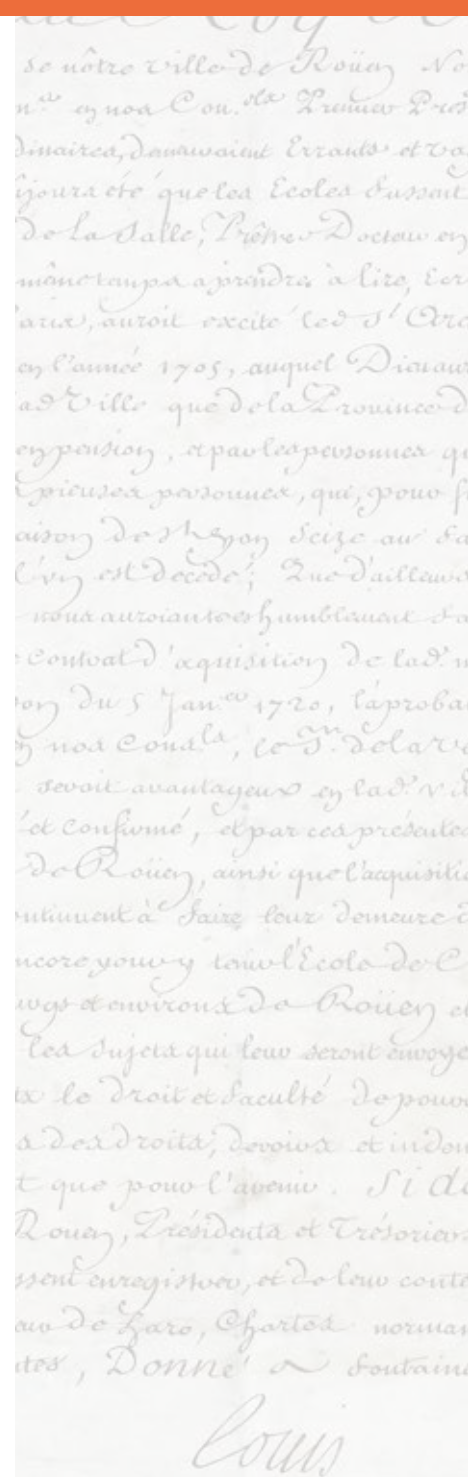 de nôtre ville de Roüen No
en nos Con.
dinaires, demeuroient Errants et va
ujours été que les Ecoles fussent
De La Salle, Prêtre Docteur en
même temps aprendre à lire, Ecr
auroit excité led. S.
en l'année 1705, auquel Dieu
Ville que de la Province d
en pension, et par les personnes qu
pieuses personnes, qui, pour f
aison De S. Yon Seize au fa
l'un est Decedé; Que d'ailleurs
nous auroient tres humblement fa
Contrat d'aquisition De lad. m
on du 5 Jan. 1720, l'aproba
nos Cons., le S. De la
seroit avantageux en lad. vil
et Confirmé, et par ces présentes
de Roüen, ainsi que l'acquisitio
ontinuent à faire leur demeure d
ncore pour y tenir l'Ecole De C
et environs De Roüen et
les Sujets qui leur seront envoye
le Droit et faculté De pouvo
Des droits, devoirs et indem
t que pour l'avenir. Si do
Rouen, Présidents et Trésoriers
ssent enregistrer, et De leur conte
De Haro, Chartes norman
Donné a Fontaine
Louis